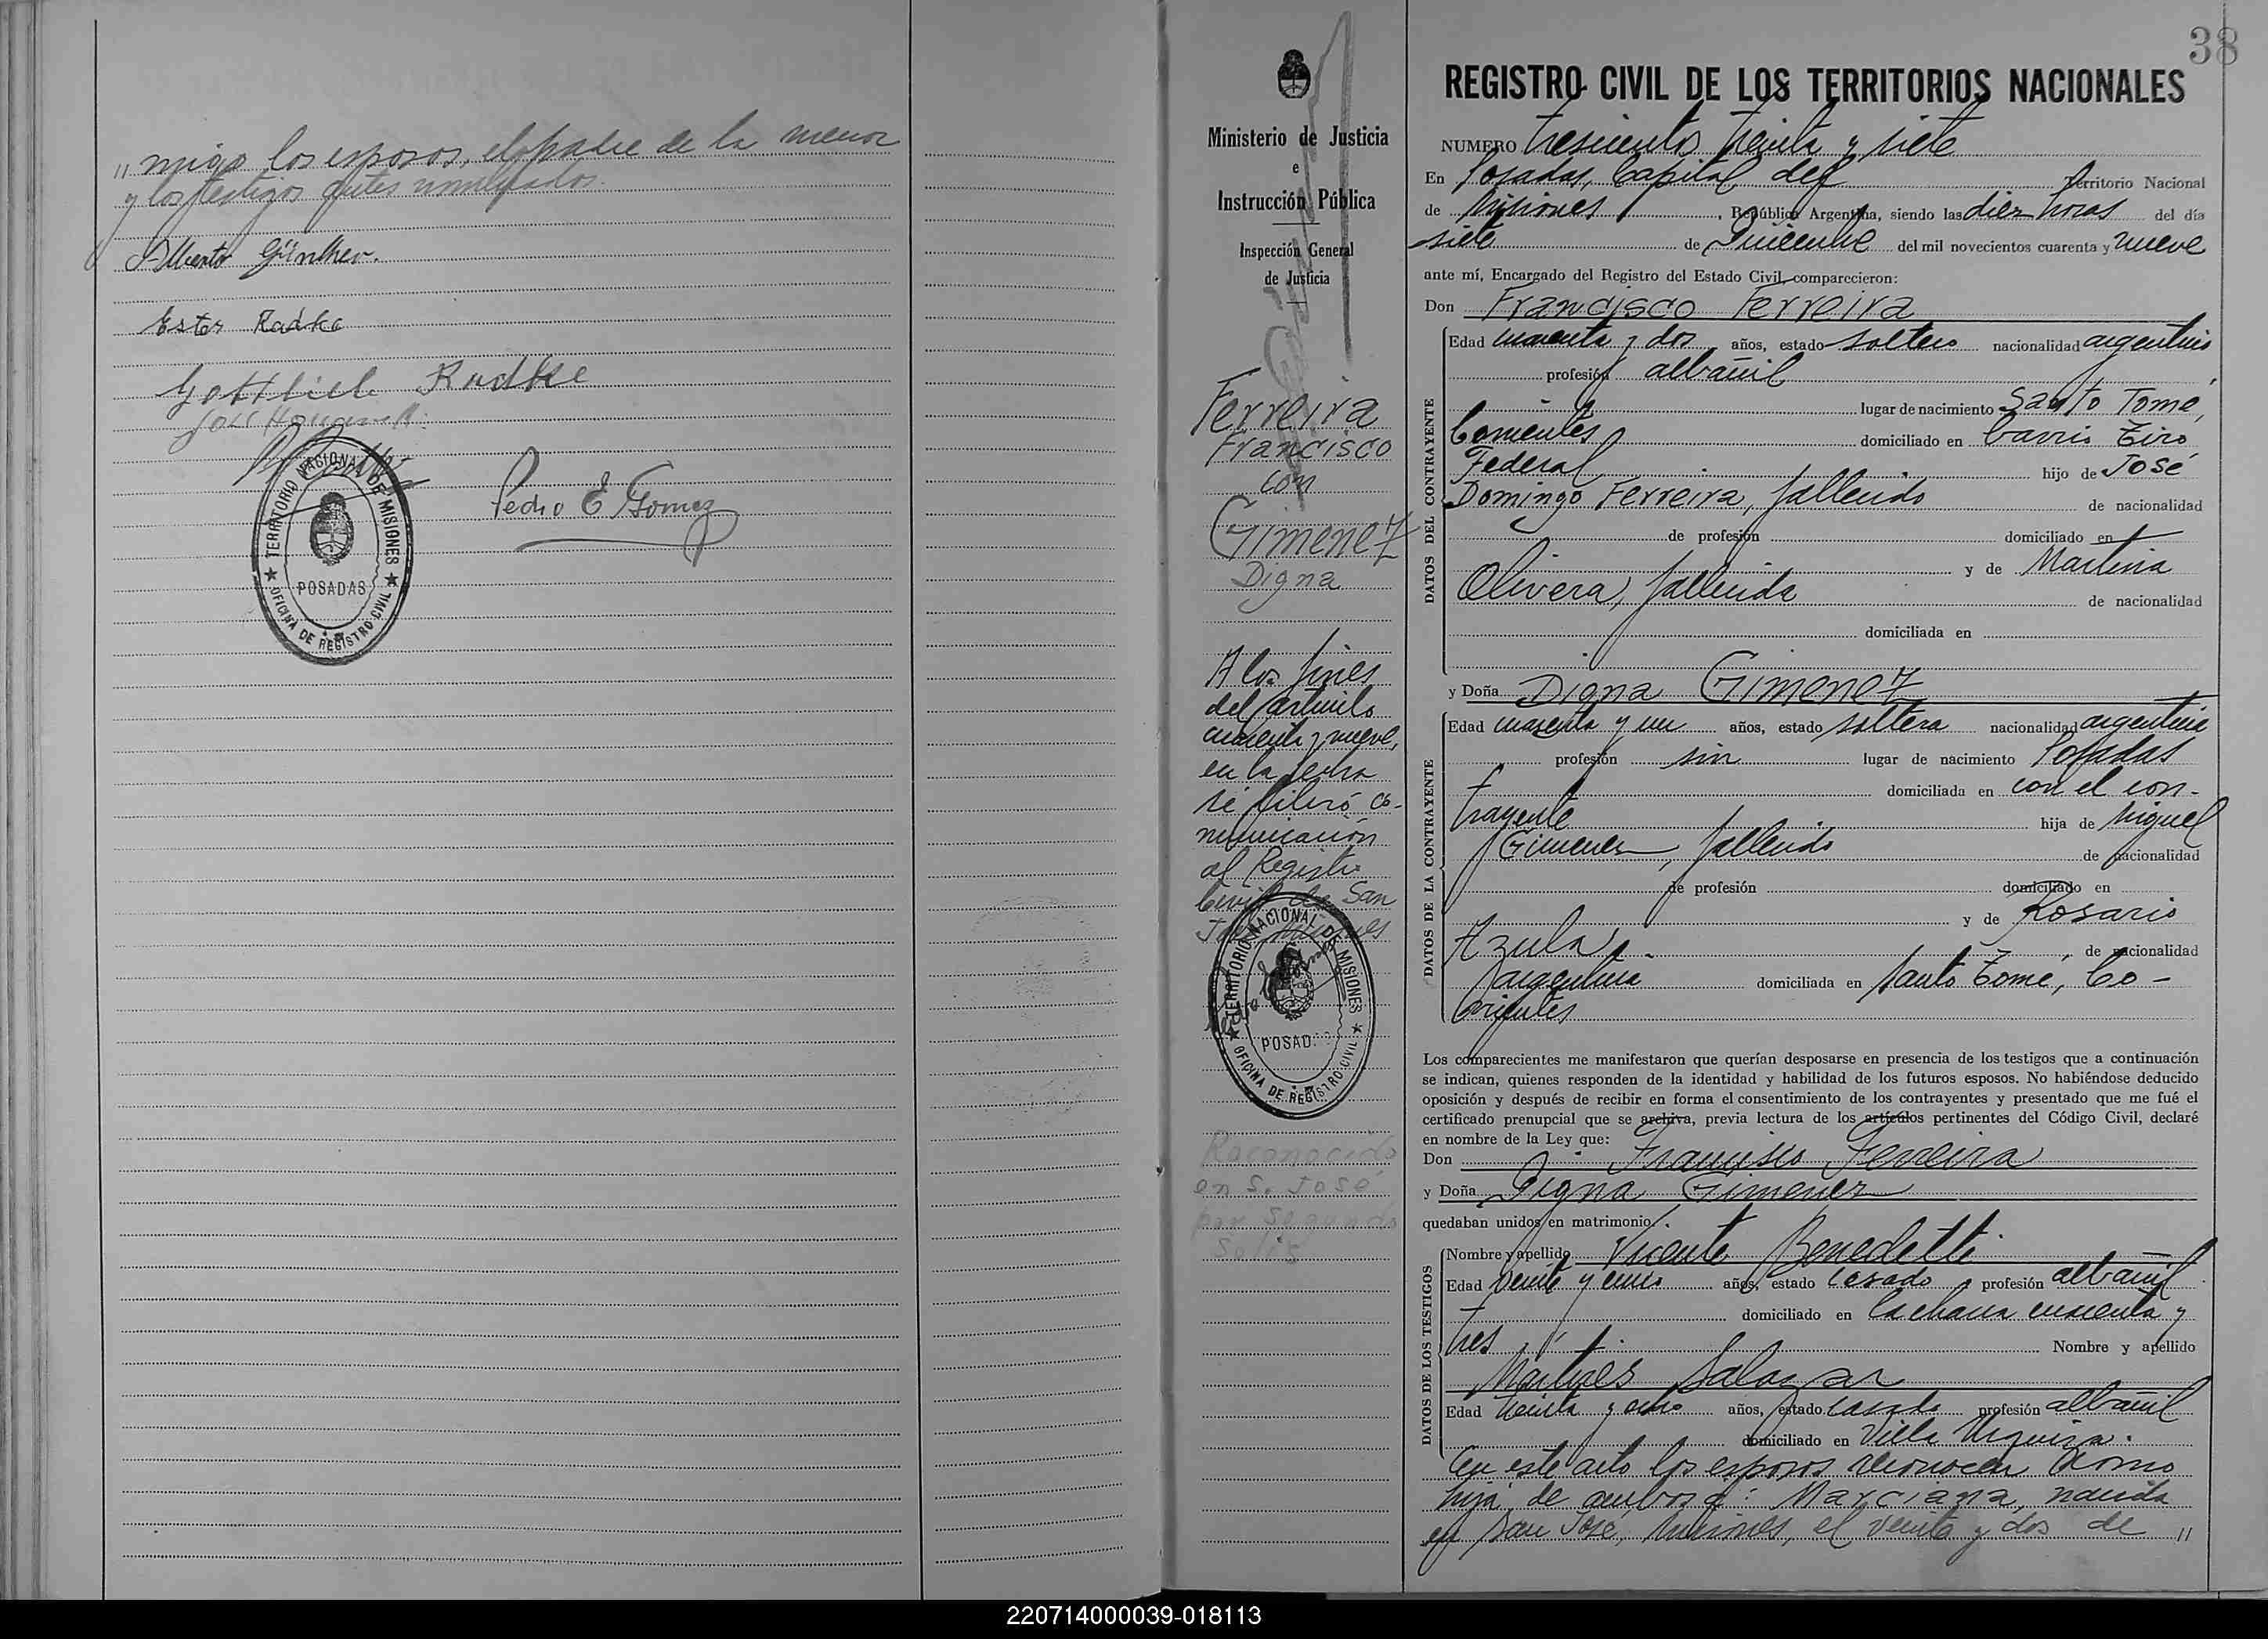 " migo los esposos, el padre de la menor
y los testigos antes nombrados.
Alberto Günther.
Ester Radke
Gottlieb Radke
TERRITORIO NACIONAL DE MISIONES
POSADAS
OFICINA DE REGISTRO CIVIL
Pedro E Gomez
Ministerio de Justicia
e
Instrucción Pública
Inspección General
de Justicia
Ferreira
Francisco
con
Gimenez
Digna
A los fines
del artículo
cuarenta y nueve,
en la fecha
se libró co-
municación
al Registro
Civil de San
José, Misiones
TERRITORIO NACIONAL DE MISIONES
POSADAS
OFICINA DE REGISTRO CIVIL
Reconocido
en S. José
por Segundo
Solís
38
REGISTRO CIVIL DE LOS TERRITORIOS NACIONALES
NUMERO trescientos treinta y siete
En Posadas, Capital del Territorio Nacional
de Misiones, República Argentina, siendo las diez horas del día
siete de Diciembre del mil novecientos cuarenta y nueve
ante mí, Encargado del Registro del Estado Civil, comparecieron:
Don Francisco Ferreira
DATOS DEL CONTRAYENTE
Edad cuarenta y dos años, estado soltero nacionalidad argentino
profesión albañil
lugar de nacimiento Santo Tomé,
Corrientes domiciliado en barrio Tiro
Federal hijo de José
Domingo Ferreira, fallecido de nacionalidad
de profesión domiciliado en
y de Martina
Olivera, fallecida de nacionalidad
domiciliada en
y Doña Digna Gimenez
DATOS DE LA CONTRAYENTE
Edad cuarenta y un años, estado soltera nacionalidad argentina
profesión sin lugar de nacimiento Posadas
domiciliada en con el con-
trayente hija de Miguel
Gimenez, fallecido de nacionalidad
de profesión domiciliado en
y de Rosario
Azula, de nacionalidad
argentina domiciliada en Santo Tomé, Co-
rrientes
Los comparecientes me manifestaron que querían desposarse en presencia de los testigos que a continuación
se indican, quienes responden de la identidad y habilidad de los futuros esposos. No habiéndose deducido
oposición y después de recibir en forma el consentimiento de los contrayentes y presentado que me fué el
certificado prenupcial que se archiva, previa lectura de los artículos pertinentes del Código Civil, declaré
en nombre de la Ley que:
Don Francisco Ferreira
y Doña Digna Gimenez
quedaban unidos en matrimonio.
DATOS DE LOS TESTIGOS
Nombre y apellido Vicente Benedetti
Edad veinte y cinco años, estado casado profesión albañil
domiciliado en la chacra cuarenta y
tres Nombre y apellido
Salazar
Edad treinta y ocho años, estado casado profesión albañil
domiciliado en Villa Urquiza.
En este acto los esposos reconocen como
hija de ambos á: Marciana, nacida
en San José, Misiones, el veinte y dos de "
220714000039-018113